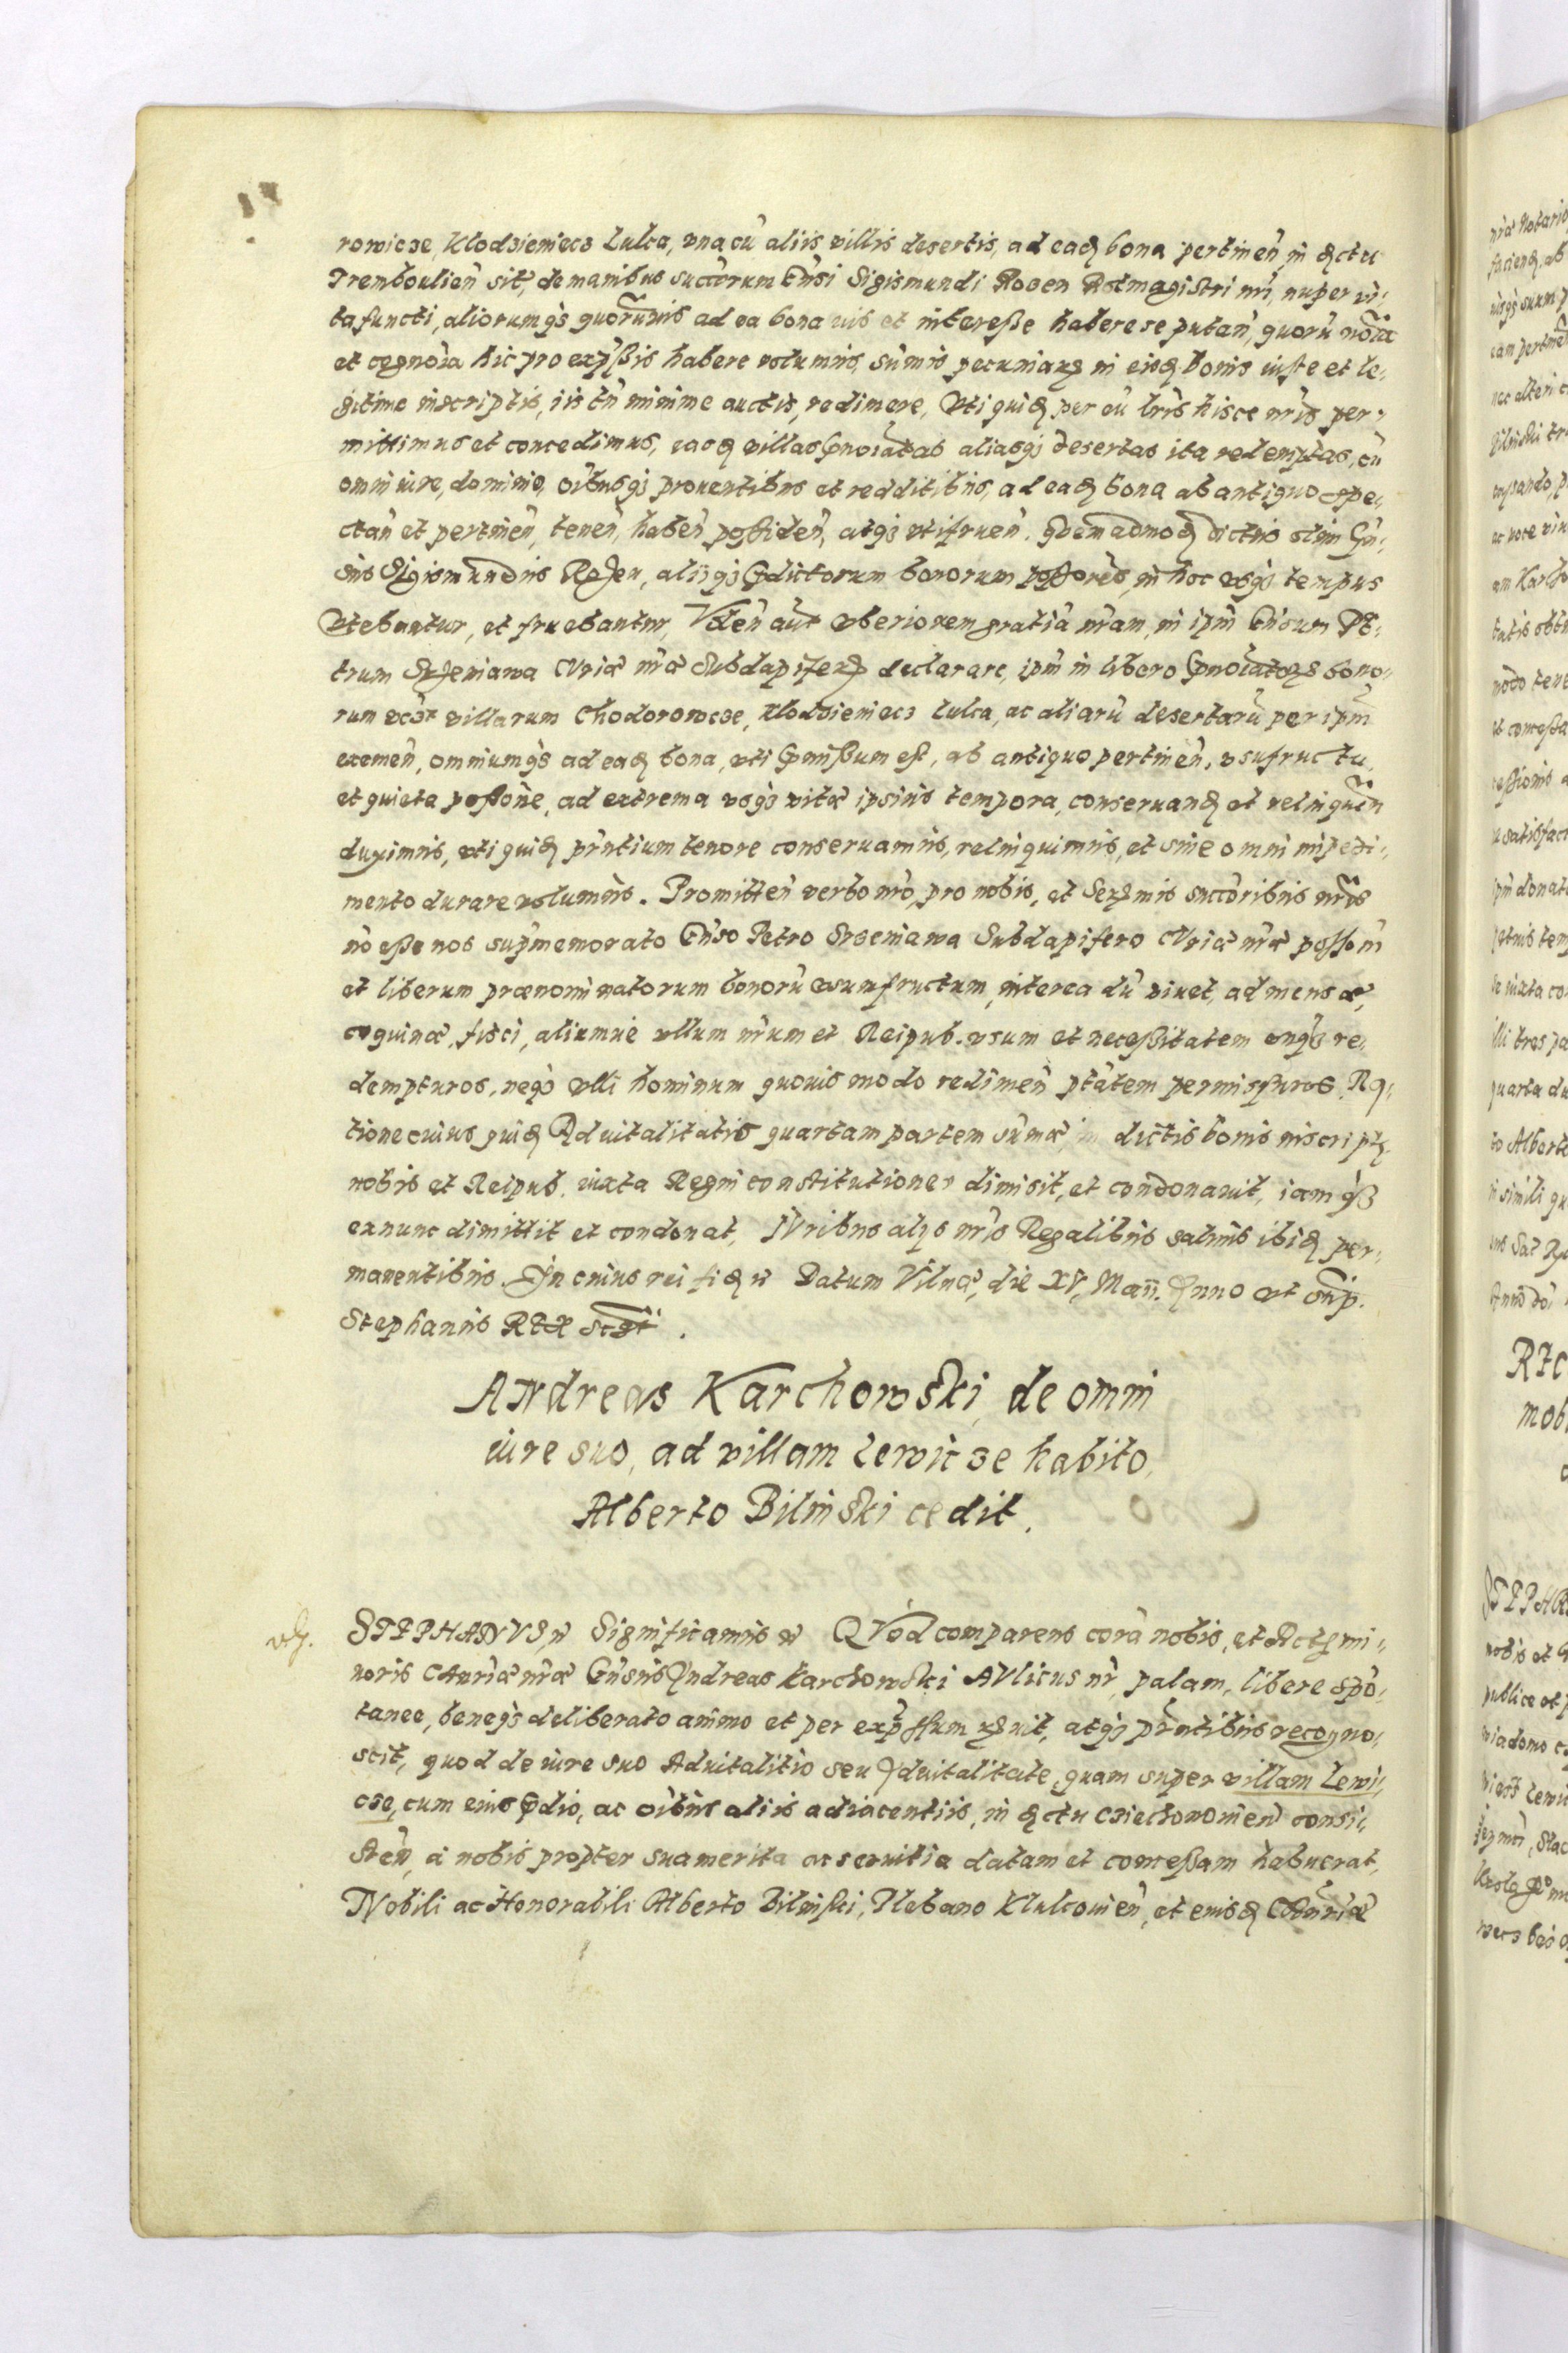 rowicze, Klodzieniecz Lulca, vna cũ aliis villis desertis, ad eadẽ bona pertineñ in dictu
Trembouliẽn sit, de manibus succõrum Gñsi Sigismundi Rosen Rotmagistri nri, nuper vi,
ta functi, aliorumqs quorũuis ad ea bona ius et intereße habere se putañ, quorũ noĩa
et cognoĩa hic pro exp̃ßis habere volumus, sũmis pecuniarꝫ in eisdẽ bonis iuste et le,
gitime inscriptis, iis tñ minime auctis, redimere, Vti quidẽ per eũ lrĩs hisce nr̃is per,
mittimus et concedimus, easdẽ villas p̃noĩatas aliasqꝫ desertas ita redemptas, cũ
omni iure, dominio, oĩbusqꝫ prouentibus et redditibus, ad eadẽ bona ab antiquo spe,
ctañ et pertineñ, teneñ, habeñ possideñ, atqꝫ vtifrueñ. Quemadmodũ dictus olim Gñ,
sus Sigismundus Rosen, aliiqꝫ p̃dictorum bonorum possores, in hoc vsqꝫ tempus
Vtebantur, et fruebantur, Voleñ aũt vberiorem gratiã nr̃am, in ipm̃ Gñsum Pe,
trum Srzeniawa Curiæ nr̃æ Subdapiferũ declarare, ipm̃ in libero p̃noĩatorꝫ bono,
rum vcꝫ villarum Chodorowcze, Klodzieniecz Lulca, ac aliarũ desertarũ per ipm̃
exemeñ, omniumqꝫ ad eadẽ bona, vti p̃mißum est, ab antiquo pertineñ, vsufructu,
et quieta poßoñe, ad extrema vsqꝫ vitæ ipsius tempora, conseruandũ et relinqueñ
duximus, vti quidẽ pr̃ntium tenore conseruamus, relinquimus, et sine omni impedi,
mento durare volumus. Promitteñ verbo nr̃o, pro nobis, et Serꝫmis succõribus nr̃is
nõ eße nos sup̃memorato Gñso Petro Srzeniawa Subdapifero Curiæ nr̃æ poßoñ
et liberum prænominatorum bonorũ vsumfructum, interea dũ viuet, ad mensæ,
coquinæ, fisci, aliumue vllum nr̃um et Reipub. vsum et neceßitatem vnqꝫ re,
dempturos, neqꝫ vlli hominum quouis modo redimeñ ptãtem permissuros. Ra,
tione cuius quidẽ Aduitalitatis quartam partem sum̃æ in dictis bonis inscriptæ
nobis et Reipub. iuxta Regni constitutiones dimisit, et condonauit, iamqꝫ
exnunc dimittit et condonat, Juribus alijs nr̃is Regalibus saluis ibidẽ per,
manentibus. In cuius rei fidẽ &c Datum Vilnæ, die XV, Maii. Anno vt sup̃.
Stephanus REX sc̃pt.
ANdreas Karchowski, de omni
iure suo, ad villam Lewicze habito,
Alberto Bilinski cedit.
vG.
STEPHANVS &c Significamus &c QVod comparens corã nobis, et Actis mi,
noris Canriæ nr̃æ Gñsus Andreas Karchowski AVlicus nr̃, palam, libere spõ,
tanee, beneqꝫ deliberato animo et per exp̃ssum rꝫuit, atqꝫ pr̃ntibus recogno,
scit, quod de iure suo Aduitalitio seu Aduitalitate, quam super villam Lewi,
cze, cum eius p̃dio, ac oĩbus aliis adiacentiis, in dictu Cziechonowień consi,
steñ, a nobis propter sua merita ac seruitia datam et conceßam habuerat,
Nobili ac Honorabili Alberto Bilinski, Plebano Klulcouień, et eiusdẽ Canriæ